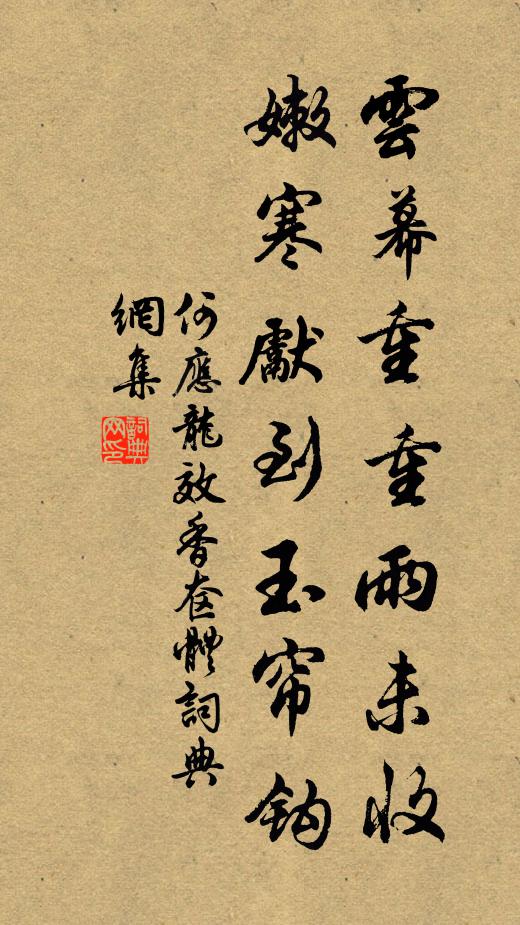 雲幕重重雨未收
嫩寒獻到玉帘鈎
何應龍效香奩體詞典
網集
詞典
网印